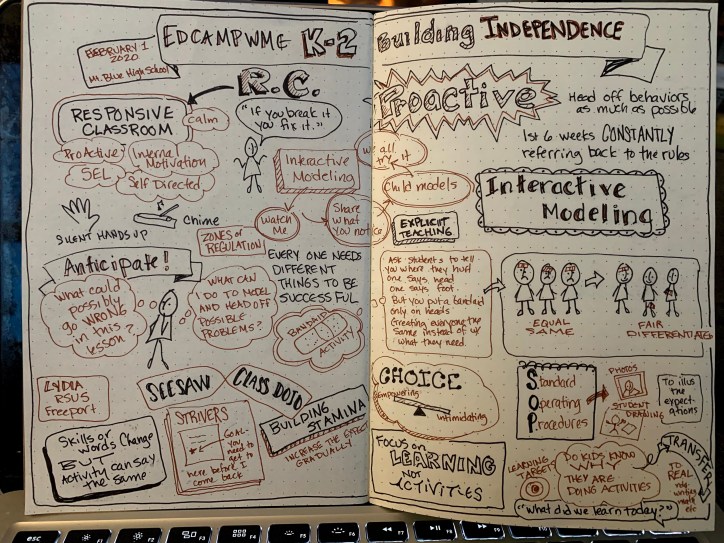 FEBRUARY 1
2020
Mt. Blue High School
EDCAMPWME K-2
R.C.
RESPONSIVE
CLASSROOM
calm
ProActive
Internal
Motivation
SEL
Self Directed
"If you break it
you fix it."
Interactive
Modeling
Watch
Me
Share
what
you notice
we all
try it
Child models
SILENT HANDS UP
Chime
ZONES OF
REGULATION
Anticipate!
What could
possibly
go WRONG
in this
lesson?
WHAT CAN
I DO TO MODEL
AND HEAD OFF
POSSIBLE
PROBLEMS?
EVERY ONE NEEDS
DIFFERENT
THINGS TO BE
SUCCESSFUL
BANDAID
ACTIVITY
LYDIA
RSU5
Freeport
SEESAW
CLASS DOJO
STRIVERS
GOAL-
you
need to
get to
here before I
come back
BUILDING
STAMINA
INCREASE THE EXPECT
GRADUALLY
Skills or
words Change
BUT
Activity can say
the same
Building INDEPENDENCE
Proactive
Head off behaviors
as much as possible
1st 6 weeks CONSTANTLY
referring back to the rules
Interactive
Modeling
EXPLICIT
TEACHING
Ask students to tell
you where they hurt
one says head
one says foot
But you put a bandaid
only on heads
Treating everyone the
same instead of w/
what they need.
EQUAL
SAME
FAIR
DIFFERENTIATE
CHOICE
Empowering
Intimidating
Standard
Operating
Procedures
PHOTOS
STUDENT
DRAWING
To illus
the
expect-
ations
FOCUS on
LEARNING
NOT
ACTIVITIES
LEARNING
TARGETS
DO KIDS KNOW
WHY
THEY ARE
DOING ACTIVITIES
TRANSFER
TO
REAL
"what did we learn today?"
esc
F1
F2
F3
F4
F5
F6
F7
F8